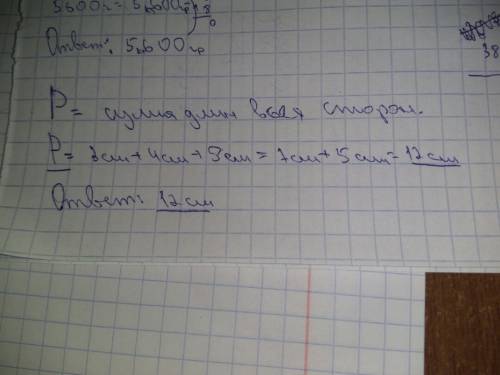 5600г = 5,600
8
0
Ответ: 5,600 гр
38
P = сумма длин всех сторон.
P = 3см + 4см + 5см = 7см + 5см = 12см
Ответ: 12см